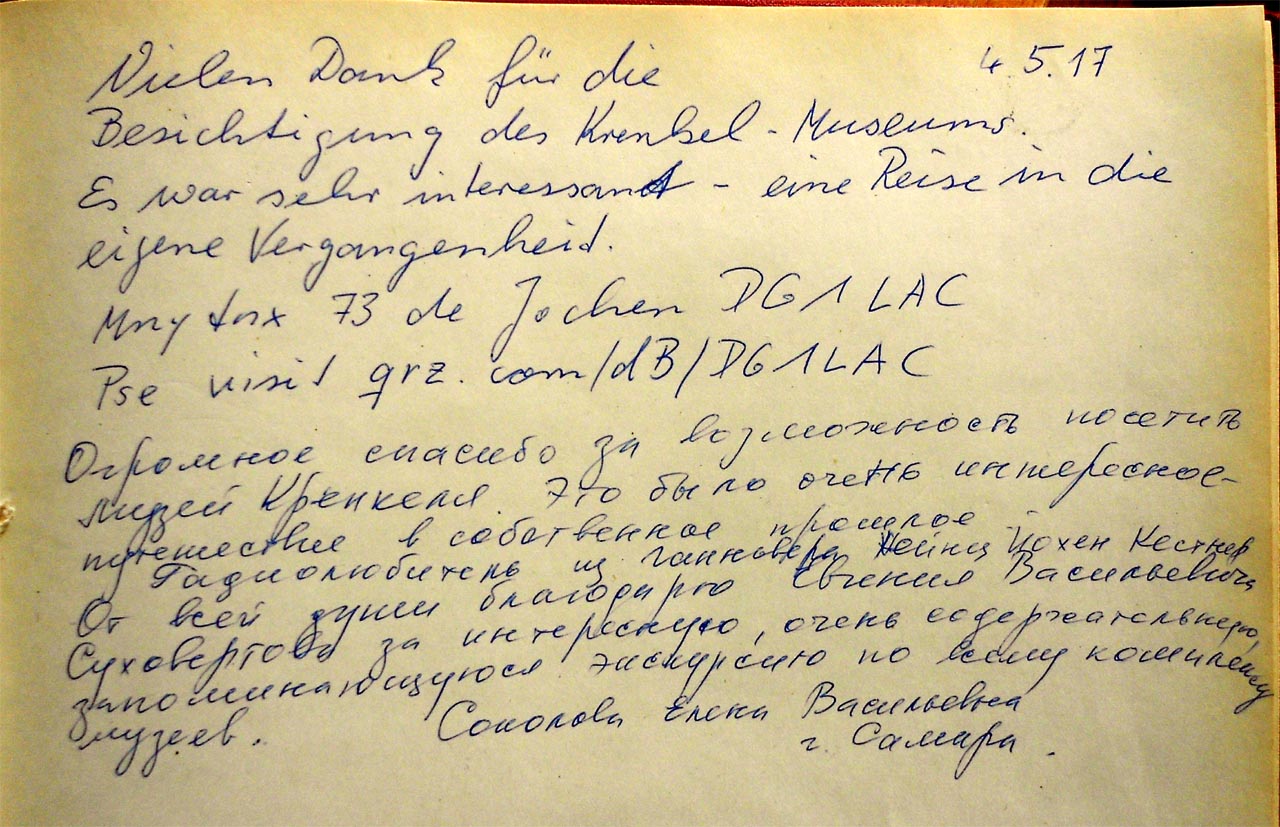 4.5.17
Vielen Dank für die
Besichtigung des Krenkel-Museums.
Es war sehr interessant - eine Reise in die
eigene Vergangenheit.
Mny tnx 73 de Jochen DG1LAC
Pse visit qrz.com/dB/DG1LAC
Огромное спасибо за возможность посетить
музей Кренкеля. Это было очень интересное-
путешествие в собственное прошлое.
Радиолюбитель из Ганновера Хейнц Йохен Кестнер
От всей души благодарю Евгения Васильевича
Суховертова за интересную, очень содержательную,
запоминающуюся экскурсию по всему комплексу
музеев. Соколова Елена Васильевна
г. Самара.